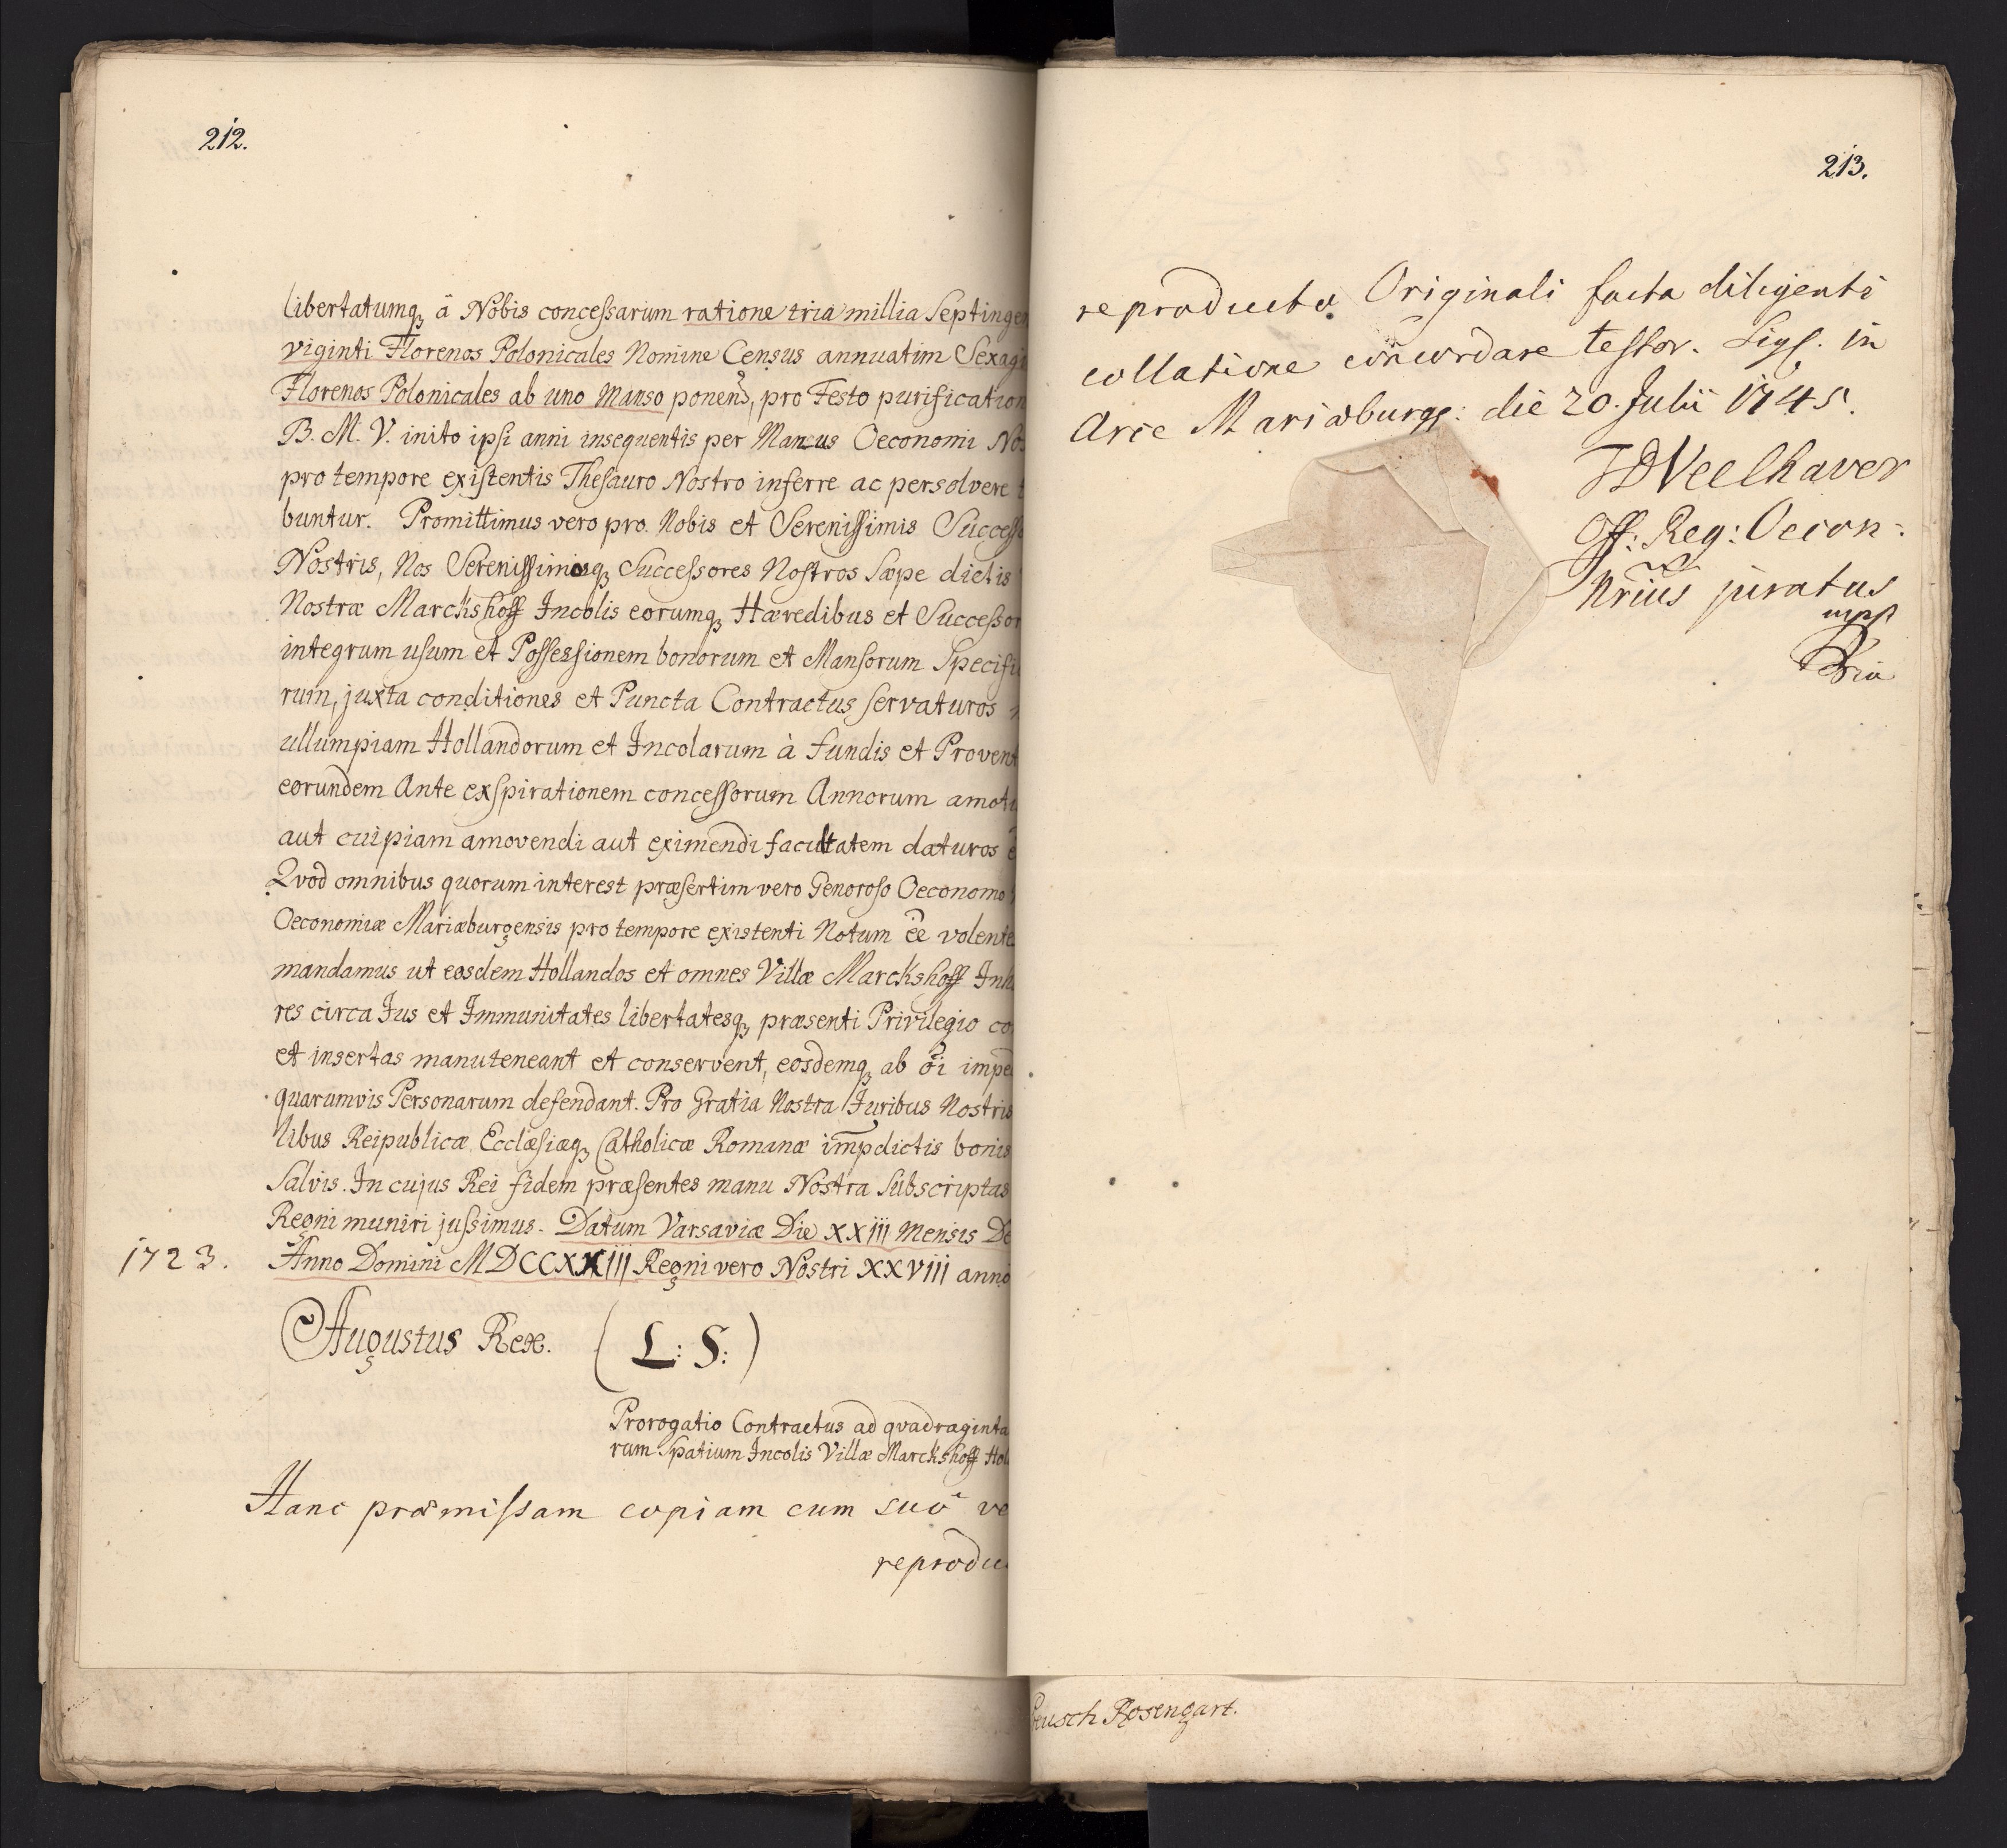 212.
libertatumq, â Nobis concessarum ratione tria millia Septingen
viginti Florenos Polonicales Nomine Census annuatim Sexag
Florenos Polonicales ab uno Manso ponen, pro Festo purification
B. M. V. inito ipsi anni insequentis per Manus Oeconomi Nos
pro tempore existentis Thesauro Nostro inferre ac persolvere
buntur. Promittimus vero pro Nobis et Serenissimis Successo
Nostris, Nos Serenissimosq, Successores Nostros sæpe dictis
Nostræ Marckshoff Incolis eorumq, Hæredibus et Successor
integrum usum et Possessionem bonorum et Mansorum Specifi
rum, juxta conditiones et Puncta Contractus servaturos
ullumpiam Hollandorum et Incolarum à fundis et Provent
eorundem Ante exspirationem concessorum Annorum amot
aut cuipiam amovendi aut eximendi facultatem daturos
Qvod omnibus quorum interest præsertim vero Genoroso Oeconomo
Oeconomiæ Mariæburgensis pro tempore existenti Notum ee volente
mandamus ut eosdem Hollandos et omnes Villæ Marckshoff Inh
res circa Jus et Immunitates libertatesq, præsenti Privilegio co
et insertas manuteneant et conservent, eosdemq, ab oi impe
quarumvis Personarum defendant. Pro Gratia Nostra Juribus Nostris
libus Reipublicæ Ecclæsiæq, Catholicæ Romanæ impdictis bonis
Salvis. In cujus Rei fidem præsentes manu Nostra Subscriptas
Regni muniri jussimus. Datum Varsaviæ Die XXiii Mensis De
1723. Anno Domini MDCCXXiii Regni vero Nostri XXViii anno
Augustus Rex. (L: S:)
Prorogatio Contractus ad qvadraginta
rum Spatium Incolis Villæ Marckshoff Hol
Hanc præmissam copiam cum suo ve
reprodu
213.
reproducto Originali facta diligenti
collatione concordare testor. Sigs. in
Arce Mariæburgs: die 20. Julii 1745.
Veelhaver
Off: Reg: Oecon:
Nrius juratus
mpp
ria
eusch Rosengart.